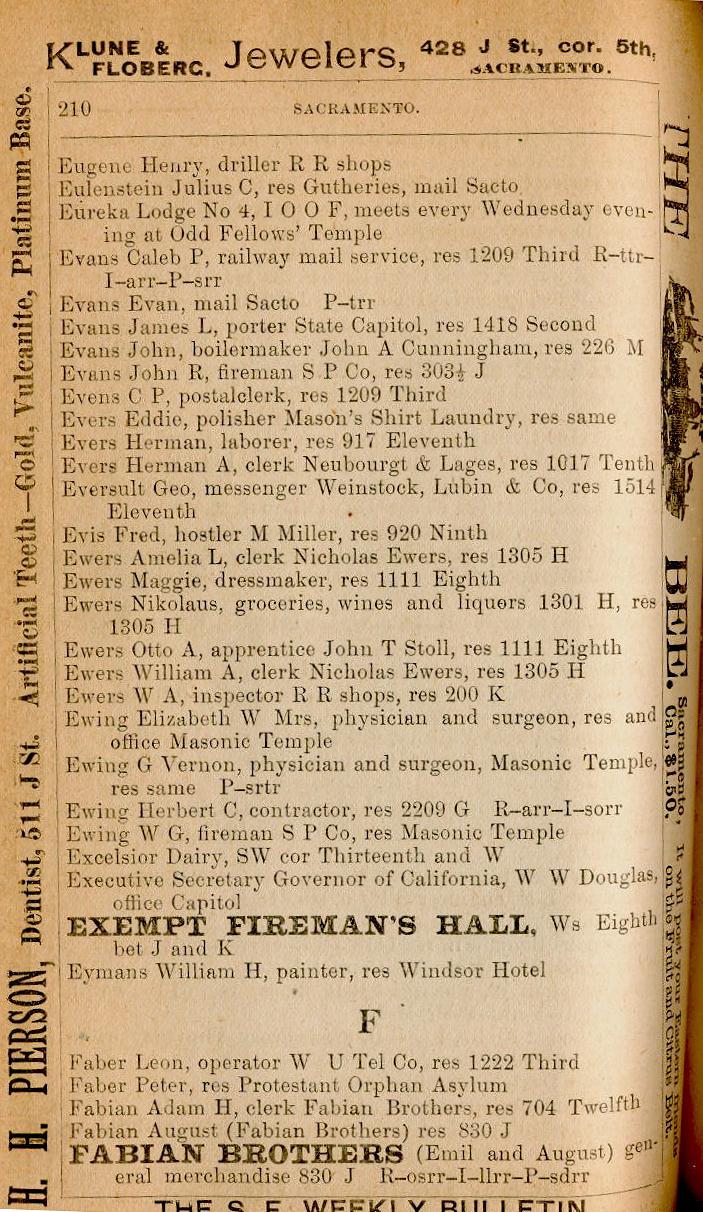 KLUNE & FLOBERG, Jewelers, 428 J St., cor. 5th, SACRAMENTO.
210 SACRAMENTO.
Eugene Henry, driller R R shops
Eulenstein Julius C, res Gutheries, mail Sacto
Eureka Lodge No 4, I O O F, meets every Wednesday even-
ing at Odd Fellows' Temple
Evans Caleb P, railway mail service, res 1209 Third R-ttr-
I-arr-P-srr
Evans Evan, mail Sacto P-trr
Evans James L, porter State Capitol, res 1418 Second
Evans John, boilermaker John A Cunningham, res 226 M
Evans John R, fireman S P Co, res 303½ J
Evens C P, postalclerk, res 1209 Third
Evers Eddie, polisher Mason's Shirt Laundry, res same
Evers Herman, laborer, res 917 Eleventh
Evers Herman A, clerk Neubourgt & Lages, res 1017 Tenth
Eversult Geo, messenger Weinstock, Lubin & Co, res 1514
Eleventh
Evis Fred, hostler M Miller, res 920 Ninth
Ewers Amelia L, clerk Nicholas Ewers, res 1305 H
Ewers Maggie, dressmaker, res 1111 Eighth
Ewers Nikolaus, groceries, wines and liquors 1301 H, res
1305 H
Ewers Otto A, apprentice John T Stoll, res 1111 Eighth
Ewers William A, clerk Nicholas Ewers, res 1305 H
Ewers W A, inspector R R shops, res 200 K
Ewing Elizabeth W Mrs, physician and surgeon, res and
office Masonic Temple
Ewing G Vernon, physician and surgeon, Masonic Temple,
res same P-srtr
Ewing Herbert C, contractor, res 2209 G R-arr-I-sorr
Ewing W G, fireman S P Co, res Masonic Temple
Excelsior Dairy, SW cor Thirteenth and W
Executive Secretary Governor of California, W W Douglas,
office Capitol
EXEMPT FIREMAN'S HALL, Ws Eighth
bet J and K
Eymans William H, painter, res Windsor Hotel
F
Faber Leon, operator W U Tel Co, res 1222 Third
Faber Peter, res Protestant Orphan Asylum
Fabian Adam H, clerk Fabian Brothers, res 704 Twelfth
Fabian August (Fabian Brothers) res 830 J
FABIAN BROTHERS (Emil and August) gen-
eral merchandise 830 J R-osrr-I-llrr-P-sdrr
THE S. F. WEEKLY BULLETIN
H. H. PIERSON, Dentist, 511 J St. Artificial Teeth—Gold, Vulcanite, Platinum Base.
THE BEE.
Sacramento, It will post your Eastern friends
Cal., $1.50. on the Fruit and Citrus Belt.